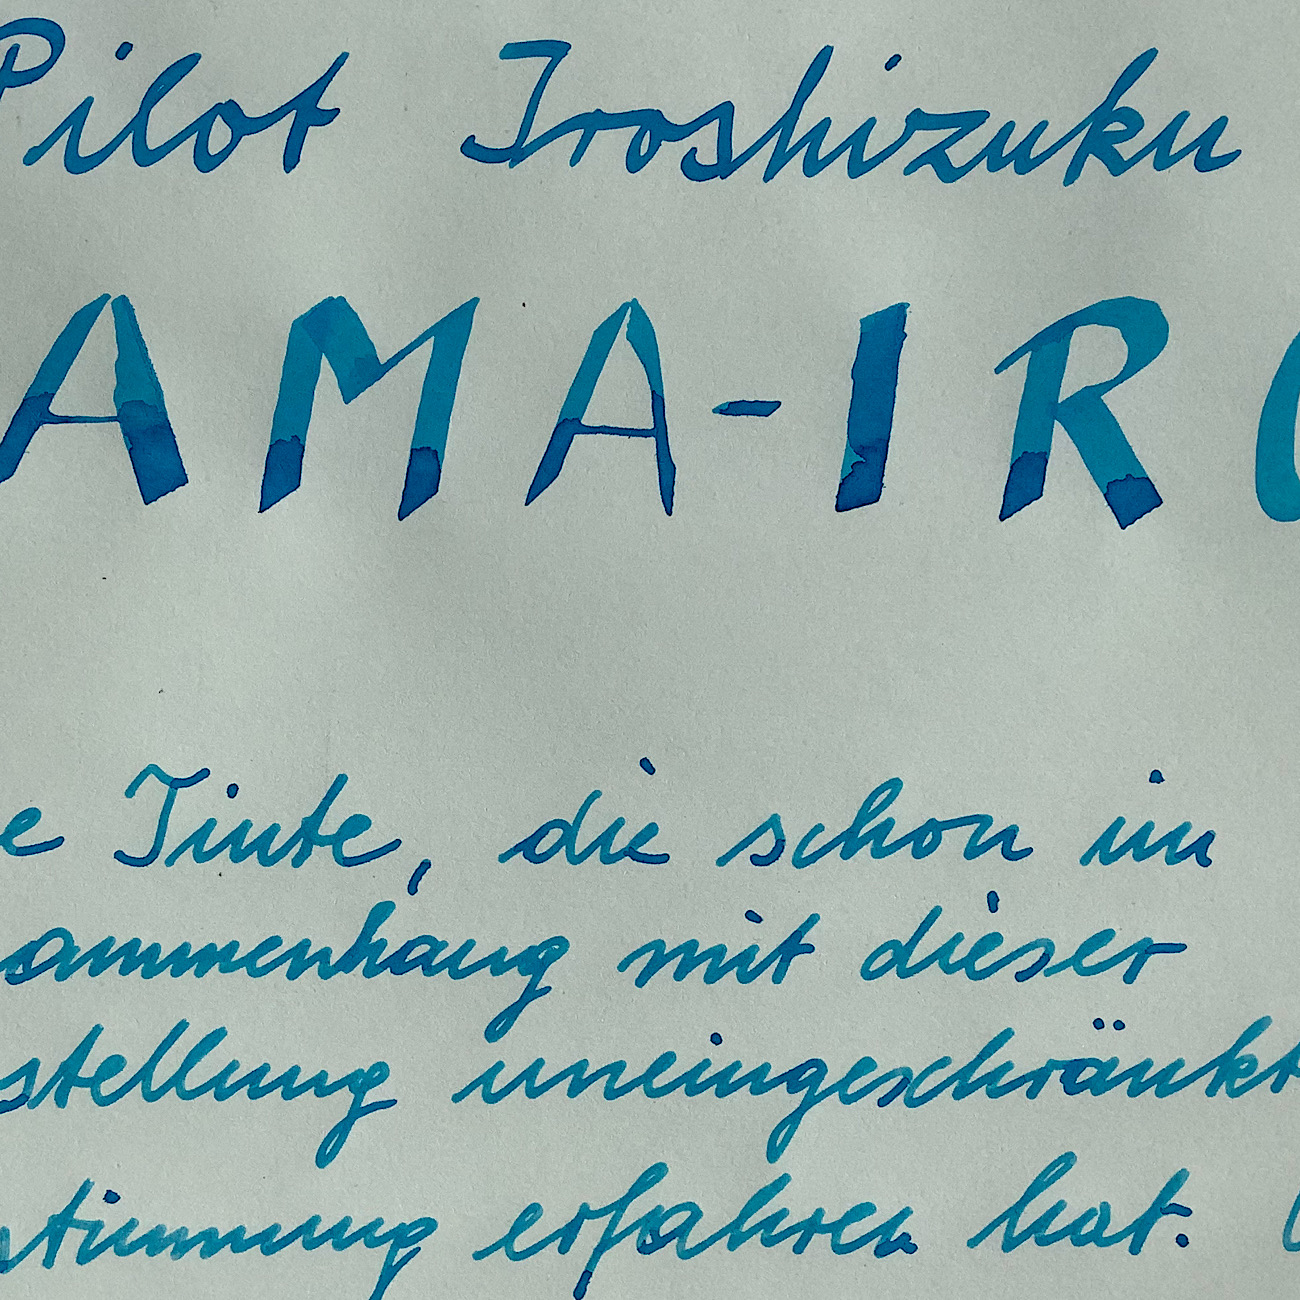 Pilot Iroshizuku
AMA-IRO
e Tinte, die schon im
ammenhang mit dieser
stellung uneingeschränkt
stimmung erfahren hat.